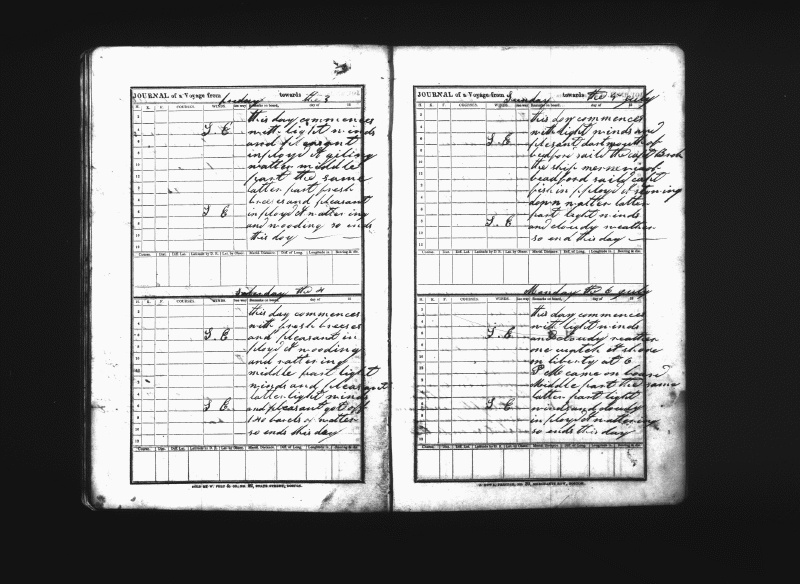 JOURNAL of a Voyage from friday towards the 3
H. K. F. COURSES. WINDS. Lee-way Remarks on board, day of 18
this day commences
S. E with light winds
and pleasant
inployd it
watter middle
part the same
latter part fresh
breeses and pleasant
S E inployd it wattering
and wooding so ends
this day
Course. Dist. Diff Lat. Latitude by D. R. Lat. by Obser. Merid Distance. Diff. of Long. Longitude in. Bearing & dis.
Saturday the 4
H. K. F. COURSES. WINDS. Lee-way Remarks on board, day of 18
this day commences
with fresh breeses
S. E and pleasant in
ployd it wooding
and wattering
middle part light
winds and pleasant
latter light winds
S E. and pleasant got off
140 barels of watter
so ends this day
Course. Dist. Diff Lat. Latitude by D. R. Lat. by Obser. Merid Distance. Diff. of Long. Longitude in. Bearing & dis.
SOLD BY STATE-STREET, BOSTON.
JOURNAL of a Voyage from Sunday towards the july
H. K. F. COURSES. WINDS. Lee-way Remarks on board, day of 18
this day commences
with light winds and
S. E pleasant dartmouth of
bedford sails the
the ship
beadford sails
inployd it stowing
down watter latter
S. E part light winds
and cloudy weather
so end this day
Course. Dist. Diff Lat. Latitude by D. R. Lat. by Obser. Merid Distance. Diff of Long. Longitude in. Bearing & dis.
Monday the 6 july
H. K. F. COURSES. WINDS. Lee-way Remarks on board, day of 18
this day commences
with light winds
S. E and cloudy weather
one watch at shore
on liberty at 6
P M came on board
Middle part the same
latter part light
S E winds and cloudy
inployd it wattering
so ends this day
Course. Dist. Diff Lat. Latitude by D. R. Lat. by Obser. Merid Distance. Diff of Long. Longitude in. Bearing & dis.
BOSTON.